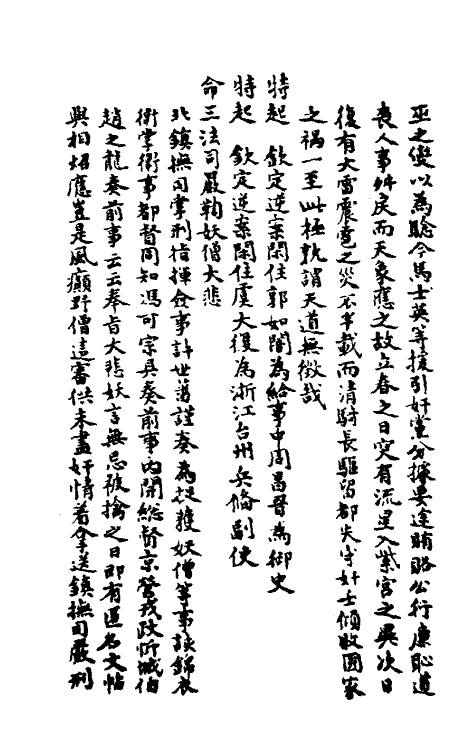 巫之變以為驗今馬士英等援引奸黨分據要途賄賂公行廉恥道
喪人事舛戾而天象應之故立春之日突有流星入紫宮之異次日
復有大雷震電之災不半載而清騎長驅留都失守奸士傾敗國家
之禍一至此極孰謂天道無徵哉
特起　欽定逆案閑住郭如闇為給事中周昌晉為御史
特起　欽定逆案閑住虞大復為浙江台州兵備副使
命三法司嚴鞠妖僧大悲
北鎮撫司掌刑指揮僉事許世蕃謹奏為捉獲妖僧等事該錦衣
衛掌衛事都督同知馮可宗具奏前事內開總督京營戎政忻城伯
趙之龍奏前事云云奉旨大悲妖言無忌被擒之日即有匿名文帖
與相炤應豈是風癲野僧這審供未盡奸情着拿送鎮撫司嚴刑